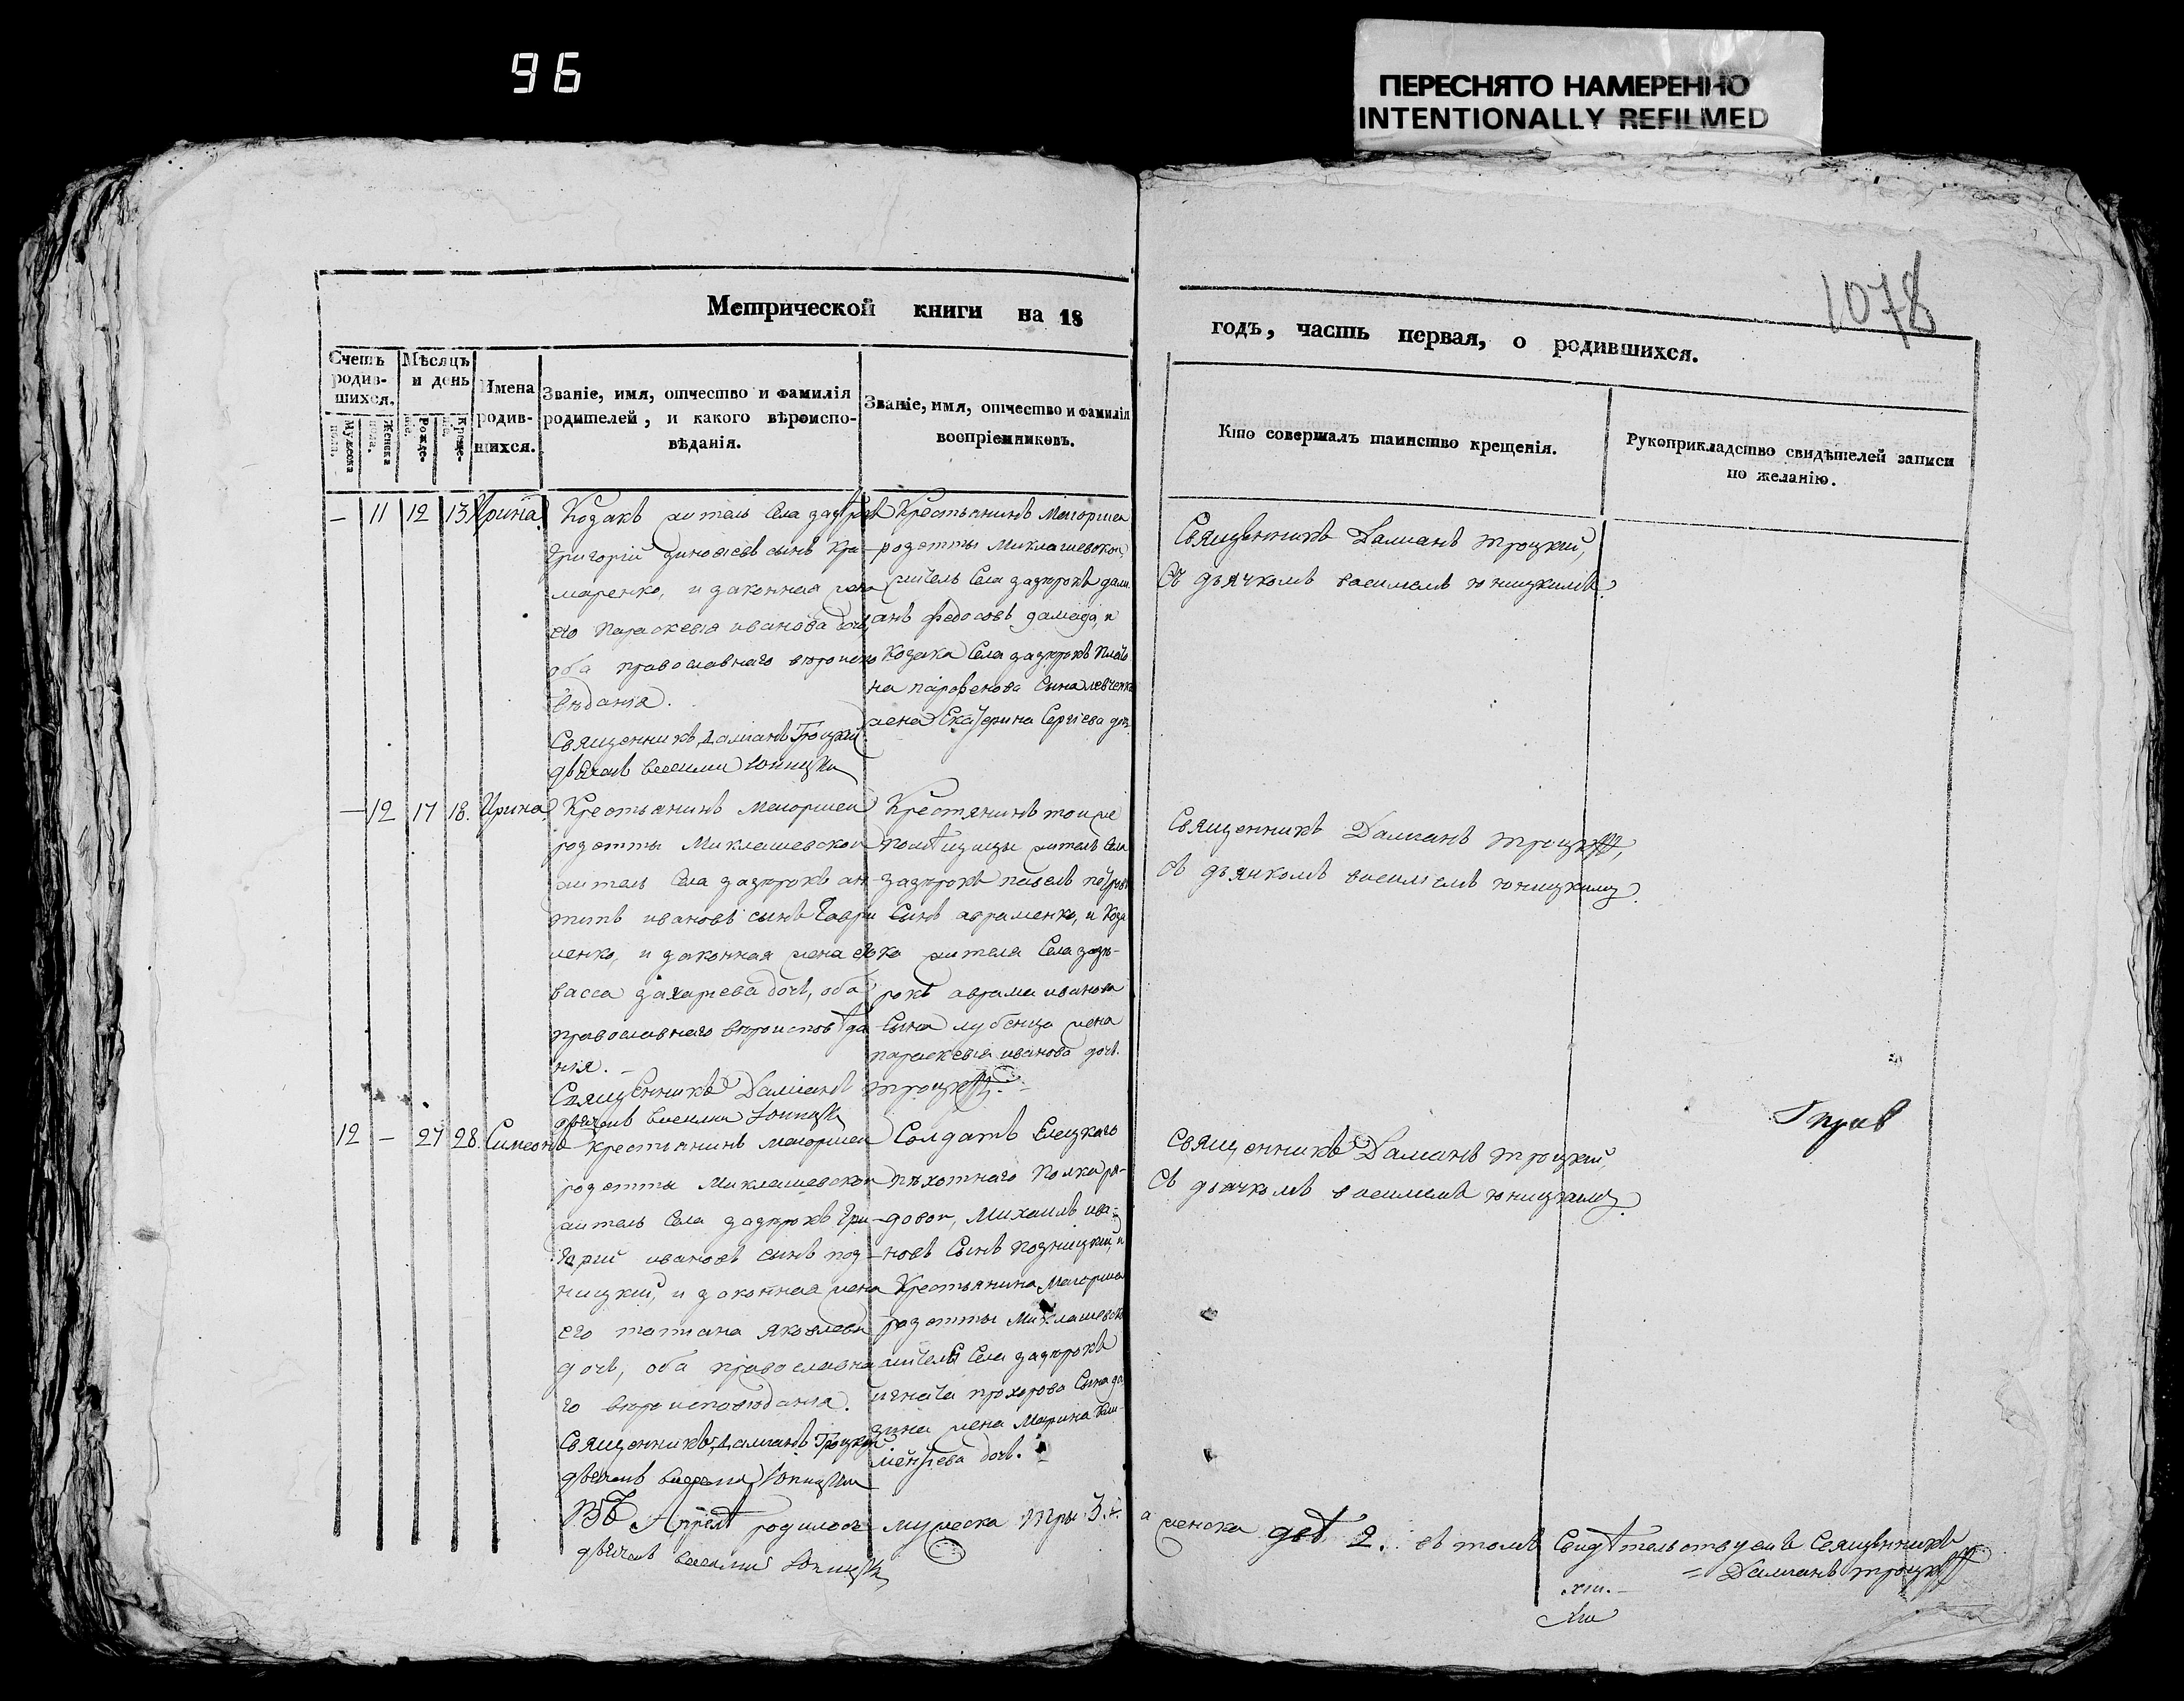 96
ПЕРЕСНЯТО НАМЕРЕННО
INTENTIONALLY REFILMED
1078
Метрической книги на 18
годъ, часть первая, о родившихся.
Счетъ родив-шихся.
Мужеска пола.
Женска пола.
Мѣсяцъ и день
Рожде-нія.
Креще-нія.
Имена родив-шихся.
Званіе, имя, отчество и фамилія
родителей, и какого вѣроиспо-
вѣданія.
Званіе, имя, отчество и фамилія
воспріемниковъ.
Кто совершалъ таинство крещенія.
Рукоприкладство свидѣтелей записи
по желанію.
— 11 12 13 Ирина
Козакъ житель Села
Григорій сынъ Кра-
маренко, и законная жена
его Параскевія иванова дочь,
оба православнаго вѣроиспо
вѣданія.
Священникъ Даміанъ Троцкій
дьячокъ Василий Юницкий
Крестьянинъ Маіорши
розетты Миклашевской,
житель Села
анъ федосовъ и
Козака Села
на парфенова Сына левченка
жена Екатерина Сергіева дочь
Священникъ Даміанъ троцкий,
Съ дьячкомъ василіемъ юницкимъ.
— 12 17 18. Ирина
Крестьянинъ Маіорши
розетты Миклашевской
житель Села ан-
типъ ивановъ сынъ Гаври
ленко, и законная жена его
васса захарьева дочь, оба
православнаго вѣроисповѣда
нія. —
Священникъ Даміанъ троцкій.
дьячокъ Василий Юницкий
Крестянинъ тои же
помѣщицы житель Села
павелъ петровъ
Сынъ авраменко, и Коза
ка жителя Села
аврама иванова
Сына лубенца жена
параскевія иванова дочь.
Священникъ Даміанъ троцкій,
съ дьячкомъ василіемъ юницкимъ.
12 — 27 28. Симеонъ
Крестьянинъ маіорши
розетты Миклашевской
житель Села Гри-
горий ивановъ сынъ поз-
ницкий, и законная жена
его татиана яковлева
дочь, оба православна
го вѣроисповѣданія.
Священникъ Даміанъ Троцкій
дьячокъ Василий Юницкий
Солдатъ Елецкаго
пѣхотнаго Полка ря-
довой, Михаилъ ива-
новъ Сынъ Позницкий, и
Крестьянина Маіорши
розетты Миклашевской
жителя Села
игната прохорова Сына
жена Марина Кли-
ментіева дочь.
Священникъ Даміанъ троцкий,
Съ дьячкомъ василіемъ юницкимъ.
Въ Апрелѣ родилось мужеска три 3. а женска двѣ 2. въ томъ Свидѣтельствуемъ Священникъ
Даміанъ троцкій
дьячокъ Василий Юницкий